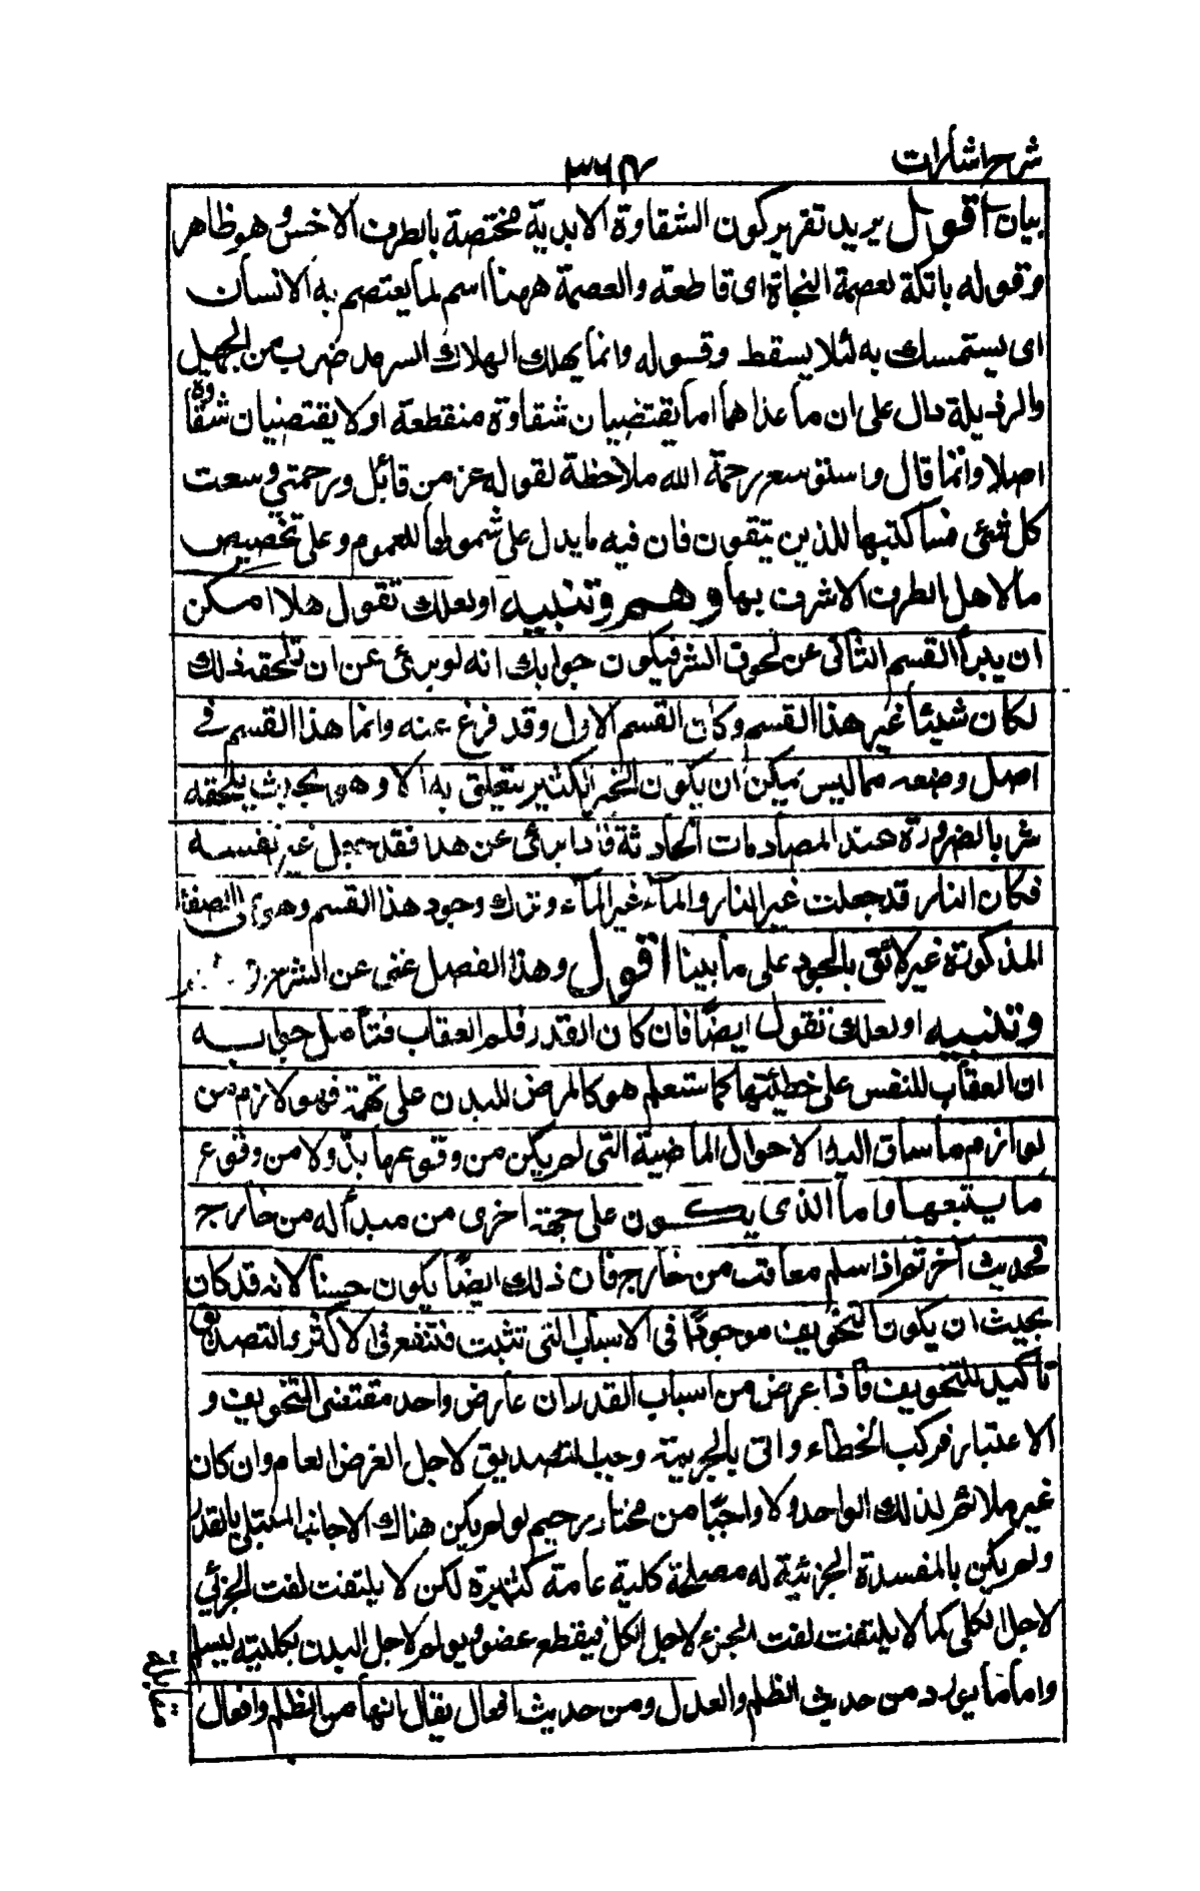 شرح اشارات
۳۶۴
بيان اقول يريد تقرير كون الشقاوة الابدية مختصة بالطرف الاخس وهو ظاهر
وقوله باتكة لعصمة النجاة اى قاطعة والعصمة ههنا اسم لما يعتصم به الانسان
اى يستمسك به لئلا يسقط وقوله وانما يهلك الهلاك السرمد ضرب من الجهل
والرذيلة دال على ان ما عداهما اما يقتضيان شقاوة منقطعة او لا يقتضيان شقاوة
اصلا وانما قال واستوسع رحمة الله ملاحظة لقوله عز من قائل ورحمتى وسعت
كل شئ فساكتبها للذين يتقون فان فيه ما يدل على شمولها للعموم وعلى تخصيص
ما لاهل الطرف الاشرف بها وهم وتنبيه او لعلك تقول هلا امكن
ان يبرأ القسم الثانى عن لحوق الشر فيكون جوابك انه لو برئ عن ان تلحقه ذلك
لكان شيئا غير هذا القسم وكان القسم الاول وقد فرغ عنه وانما هذا القسم فى
اصل وضعه مما ليس يمكن ان يكون الخير الكثير يتعلق به الا وهو بحيث يلحقه
شر بالضرورة عند المصادمات الحادثة فاذا برئ عن هذا فقد جعل غير نفسه
فكان النار قد جعلت غير النار والماء غير الماء وترك وجود هذا القسم وهو على الصفة
المذكورة غير لائق بالجود على ما بينا اقول وهذا الفصل غنى عن الشرح
وتنبيه او لعلك تقول ايضا فان كان القدر فلم العقاب فتأمل جوابه
ان العقاب للنفس على خطيئتها كما ستعلم هو كالمرض للبدن على نهمه فهو لازم من
لوازم ما ساق اليه الاحوال الماضية التى لم يكن من وقوعها بدّ ولا من وقوع
ما يتبعها واما الذى يكون على جهة اخرى من مبدأ له من خارج
فحديث آخر ثم اذا سلم معاقب من خارج فان ذلك ايضا يكون حسنا لانه قد كان
يجب ان يكون التخويف موجودا فى الاسباب التى تثبت فتنفع فى الاكثر والتصديق
تأكيد للتخويف فاذا عرض من اسباب القدر ان عارض واحد مقتضى التخويف و
الاعتبار فركب الخطاء واتى بالجريمة وجب التصديق لاجل الغرض العام وان كان
غير ملائم لذلك الواحد ولا واجبا من مختار رحيم لو لم يكن هناك الا جانب المبتلى بالقدر
ولم يكن بالمفسدة الجزئية له مصلحة كلية عامة كثيرة لكن لا يلتفت لفت الجزئي
لاجل الكلى كما لا يلتفت لفت الجزء لاجل الكل فيقطع عضو ويولم لاجل البدن بكليته ليسلم
واما ما يورد من حديث الظلم والعدل ومن حديث افعال يقال انها من الظلم وافعال